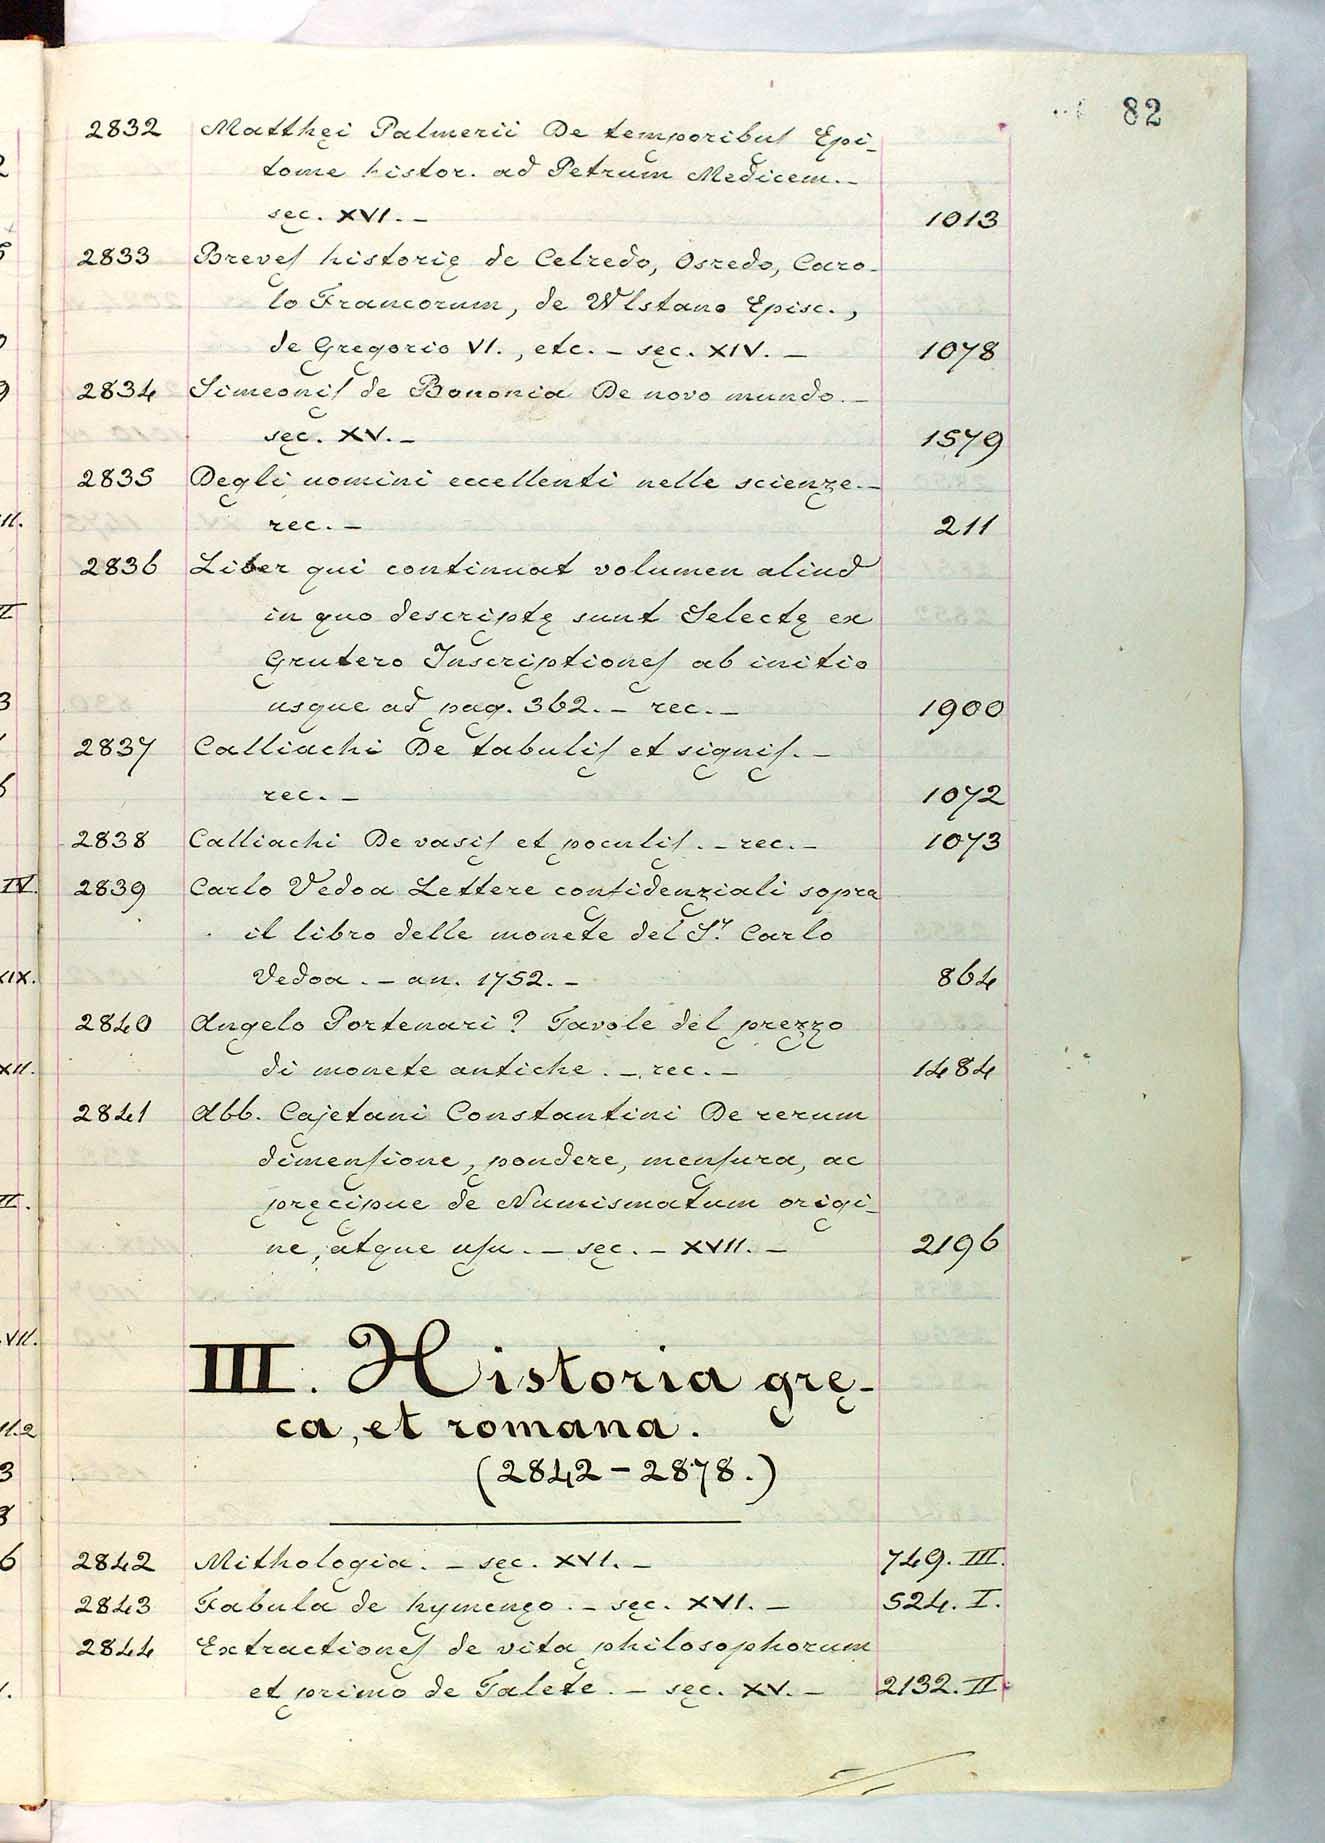 82
2832 Matthęi Palmerii De temporibus Epi-
tome histor. ad Petrum Medicem. -
sęc. XVI. - 1013
2833 Breves historię de Celredo, Osredo, Caro-
lo Francorum, de Wlstano Episc.,
de Gregorio VI., etc. - sęc. XIV. - 1078
2834 Simeonis de Bononia De novo mundo. -
sęc. XV. - 1579
2835 Degli uomini eccellenti nelle scienze. -
rec. - 211
2836 Liber qui continuat volumen aliud
in quo descriptę sunt Selectę ex
Grutero Inscriptiones ab initio
usque ad pag. 362. - rec. - 1900
2837 Calliachi De tabulis et signis. -
rec. - 1072
2838 Calliachi De vasis et poculis. - rec. - 1073
2839 Carlo Vedoa Lettere confidenziali sopra
il libro delle monete del Sr. Carlo
Vedoa. - an. 1752. - 864
2840 Angelo Portenari? Tavole del prezzo
di monete antiche. - rec. - 1484
2841 Abb. Cajetani Constantini De rerum
dimensione, pondere, mensura, ac
pręcipue de Numismatum origi-
ne, atque usu. - sęc. - XVII. - 2196
III. Historia grę-
ca, et romana.
(2842 - 2878.)
2842 Mithologia. - sęc. XVI. - 749. III.
2843 Fabula de hymenęo. - sęc. XVI. - 524. I.
2844 Extractiones de vita philosophorum
et primo de Talete. - sęc. XV. - 2132. II